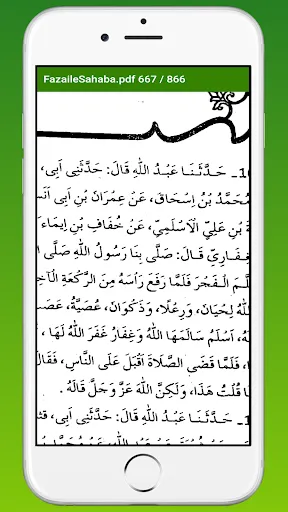 FazaileSahaba.pdf 667 / 866
ـ حَدَّثَنَا عَبْدُ اللّٰهِ قَالَ: حَدَّثَنِي أَبِي،
مُحَمَّدُ بْنُ إِسْحَاقَ، عَنْ عِمْرَانَ بْنِ أَبِي أَنَس
بْنِ عَلِيِّ الْاَسْلَمِيِّ، عَنْ خُفَافِ بْنِ اِيمَاءَ
ـفَارِيِّ قَالَ: صَلَّى بِنَا رَسُولُ اللّٰهِ صَلَّى ا
لَّمَ الْفَجْرَ فَلَمَّا رَفَعَ رَاْسَهُ مِنَ الرَّكْعَةِ الْآخِـ
للّٰهُ لِحْيَانَ، وَرِعْلًا، وَذَكْوَانَ، عُصَيَّةُ، عَصَـ
، اَسْلَمُ سَالَمَهَا اللّٰهُ وَغِفَارُ غَفَرَ اللّٰهُ لَهَا ،
، فَلَمَّا قَضَى الصَّلَاةَ اَقْبَلَ عَلَى النَّاسِ، فَقَالَ
ا قُلْتُ هَذَا، وَلَكِنَّ اللّٰهَ عَزَّ وَجَلَّ قَالَهُ .
ـ حَدَّثَنَا عَبْدُ اللّٰهِ قَالَ: حَدَّثَنِي اَبِي، قثنـ